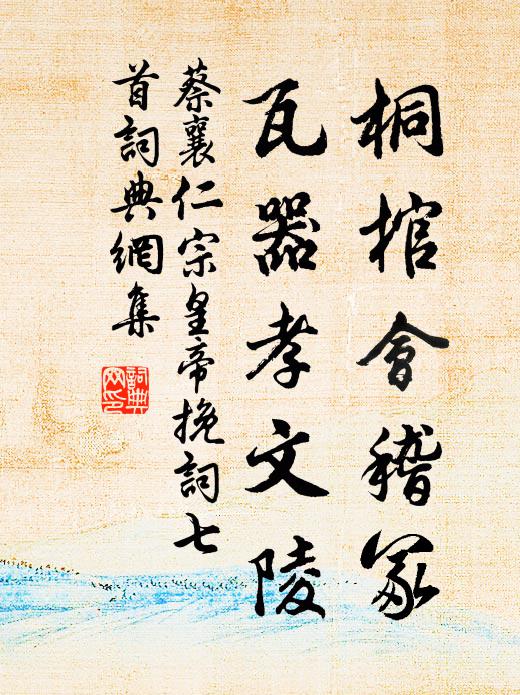 桐棺會稽冢
瓦器孝文陵
蔡襄仁宗皇帝挽詞七
首詞典網集
詞典網印